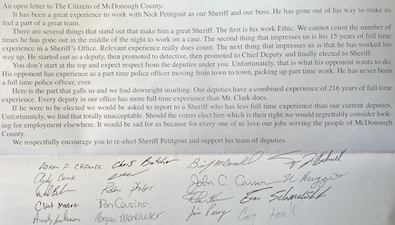 An open letter to The Citizens of McDonough County:
It has been a great experience to work with Nick Petitgout as our Sheriff and our boss. He has gone out of his way to make us
feel a part of a great team.
There are several things that stand out that make him a great Sheriff. The first is his work Ethic. We cannot count the number of
times he has gone out in the middle of the night to work on a case. The second thing that impresses us is his 15 years of full time
experience in a Sheriff's Office. Relevant experience really does count. The next thing that impresses us is that he has worked his
way up. He started out as a deputy, then promoted to detective, then promoted to Chief Deputy and finally elected to Sheriff.
You don't start at the top and expect respect from the deputies under you. Unfortunately, that is what his opponent wants to do.
His opponent has experience as a part time police officer moving from town to town, picking up part time work. He has never been
a full time police officer, ever.
Here is the part that galls us and we find downright insulting. Our deputies have a combined experience of 216 years of full time
experience. Every deputy in our office has more full time experience than Mr. Clark does.
If he were to be elected we would be asked to report to a Sheriff who has less full time experience than our current deputies.
Unfortunately, we find that totally unacceptable. Should the voters elect him which is their right,we would regrettably consider look-
ing for employment elsewhere. It would be sad for us because for every one of us love our jobs serving the people of McDonough
County.
We respectfully encourage you to re-elect Sheriff Petitgout and support his team of deputies.
Adam J. Crenshaw
Chris Butcher
John C. Carson
Clint Moore
Don Cousins
Evan Schmalshof
Morgan Werkheiser